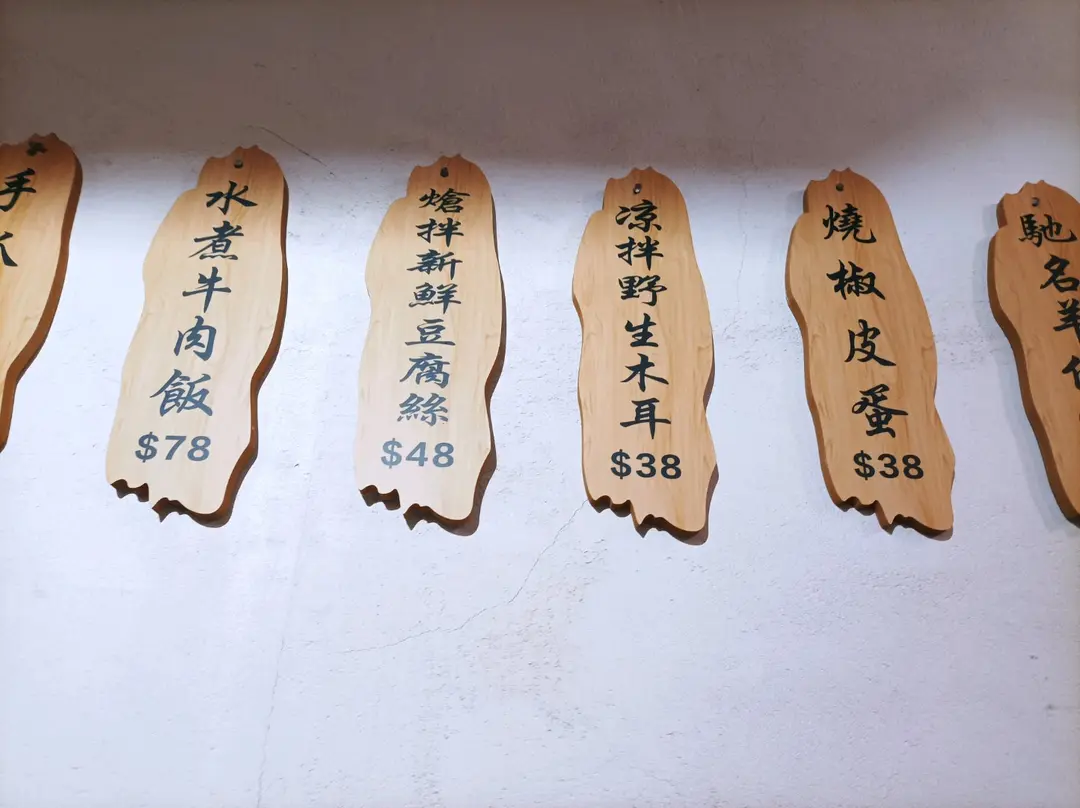 手
水煮牛肉飯
$78
熗拌新鮮豆腐絲
$48
凉拌野生木耳
$38
燒椒皮蛋
$38
馳名羊